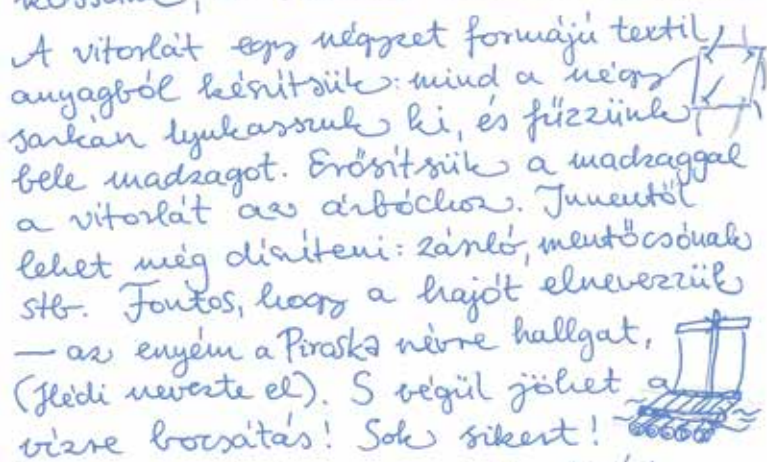 A vitorlát egy négyzet formájú textil
anyagból készítsük: mind a négy
sarkán lyukasszuk ki, és fűzzünk
bele madzagot. Erősítsük a madzaggal
a vitorlát az árbóchoz. Innentől
lehet még díszíteni: zászló, mentőcsónak
stb. Fontos, hogy a hajót elnevezzük
— az enyém a Piroska névre hallgat,
(Hédi nevezte el). S végül jöhet a
vízre bocsátás! Sok sikert!